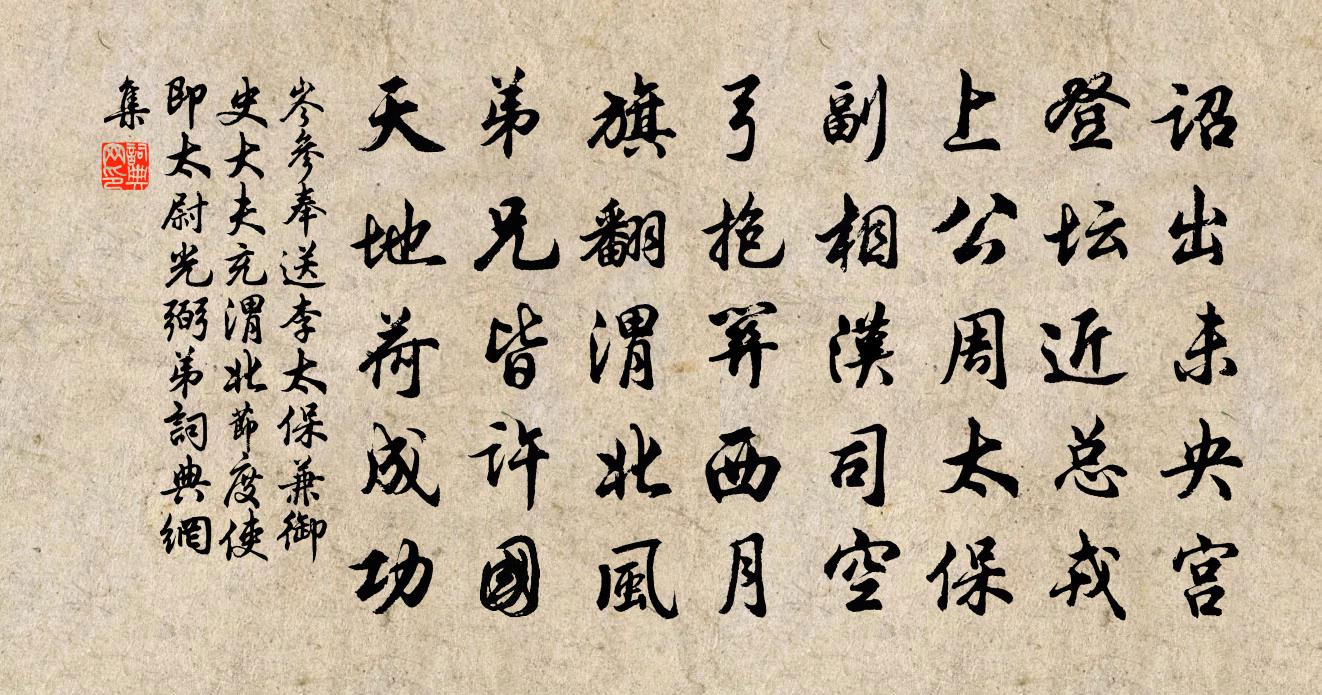 诏出未央宫
登坛近总戎
上公周太保
副相漢司空
弓抱關西月
旗翻渭北風
弟兄皆许國
天地荷成功
岑參奉送李太保兼御
史大夫充渭北節度使
即太尉光弼弟詞典網
集
詞典
网印